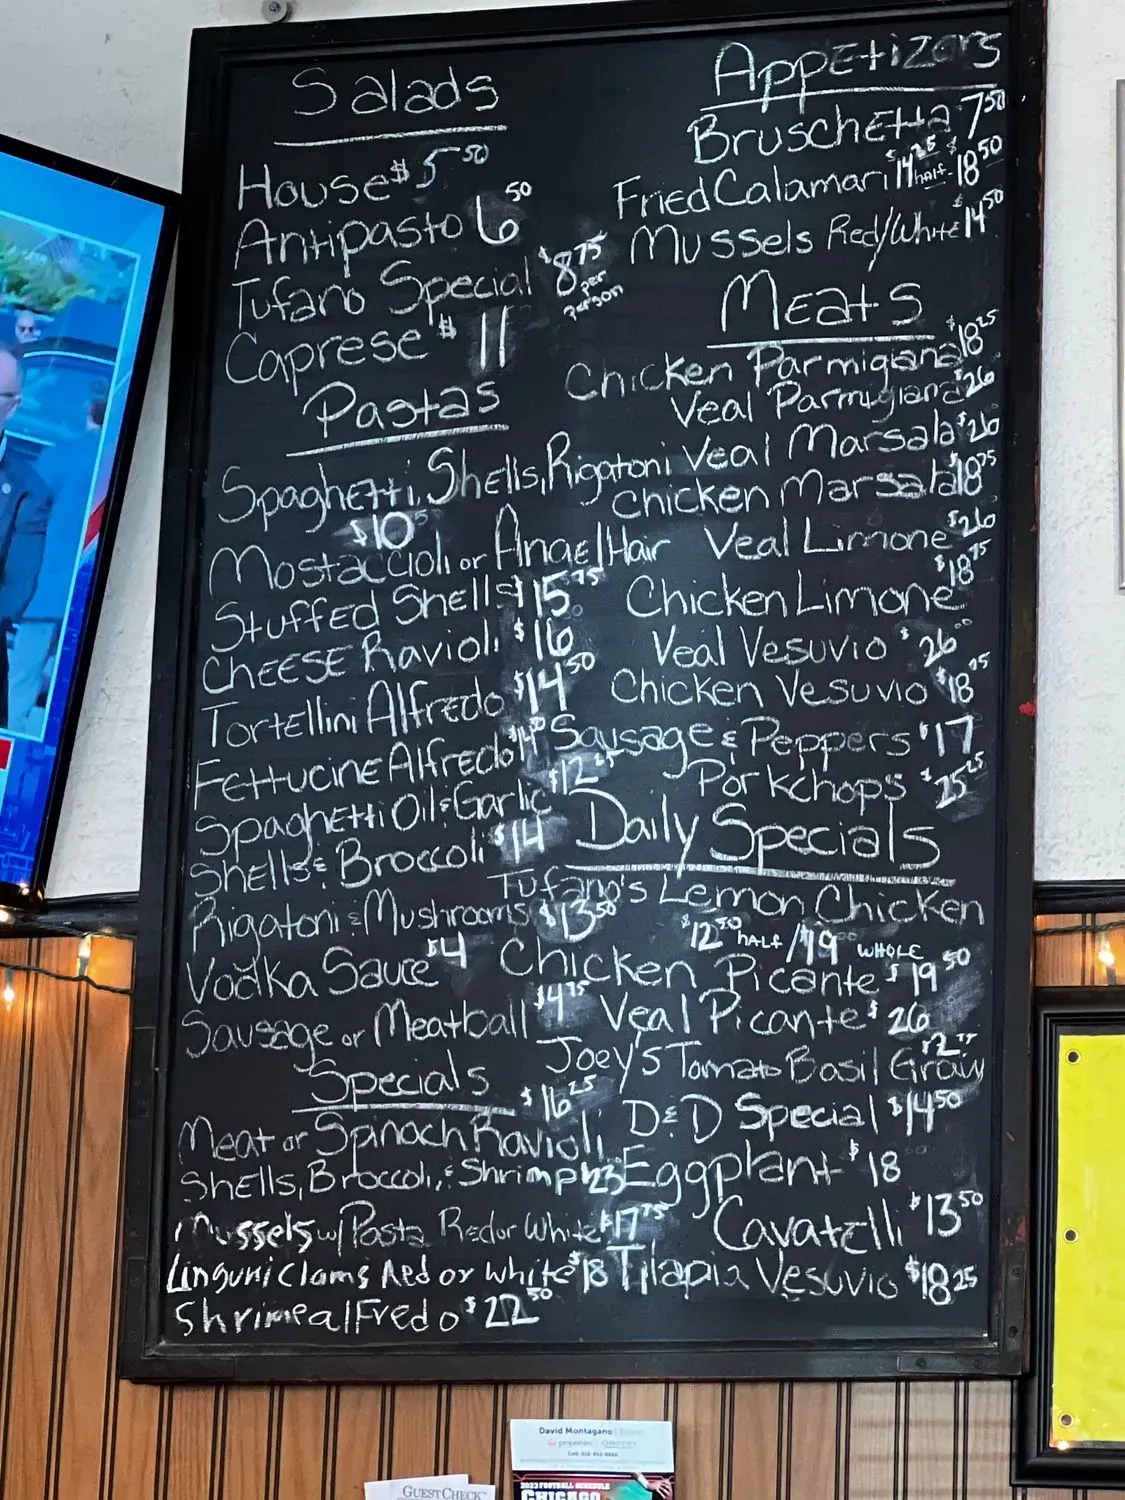 Salads
House $5.50
Antipasto 6.50
Tufano Special $8.75 per person
Caprese $11
Pastas
Spaghetti, Shells, Rigatoni
$10
Mostaccioli or Angel Hair
Stuffed Shells $15.75
CHEESE Ravioli $16
Tortellini Alfredo $14.50
Fettucine Alfredo
Spaghetti Oil & Garlic $12.25
Shells & Broccoli $14
Rigatoni & Mushrooms $13.50
Vodka Sauce $4
Sausage or Meatball $4.75
Specials
$16.25
Meat or Spinach Ravioli
Shells, Broccoli, & Shrimp 23
Mussels w/Pasta Red or White $17.75
Linguni Clams Red or White $18
Shrimp alFredo $22.50
Appetizers
Bruschetta 7.50
Fried Calamari $14.25 half $18.50
Mussels Red/White $14.50
Meats
Chicken Parmigiana $18.25
Veal Parmigiana $26
Veal Marsala $26
Chicken Marsala $18.75
Veal Limone $26
Chicken Limone $18.75
Veal Vesuvio $26.00
Chicken Vesuvio $18.75
Sausage & Peppers $17
Porkchops $25.25
Daily Specials
Tufano's Lemon Chicken
$12.50 HALF / $19 WHOLE
Chicken Picante $19.50
Veal Picante $26
Joey's Tomato Basil Gravy
D & D Special $14.50
Eggplant $18
Cavatelli $13.50
Tilapia Vesuvio $18.25
David Montagano
GUESTCHECK
2023 FOOTBALL SCHEDULE
CHICAGO